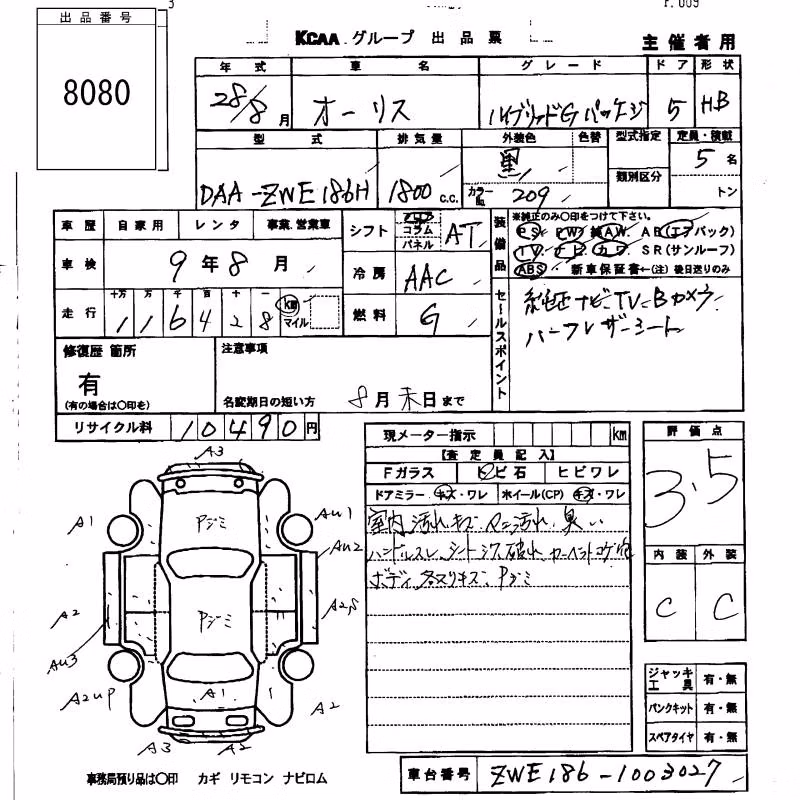 出品番号
8080
KCAA グループ 出品票
主催者用
年式 車名 グレード ドア 形状
28/8月 オーリス ハイブリッドGパッケージ 5 HB
型式 排気量 外装色 色替 型式指定 定員・積載
DAA-ZWE186H 1800 c.c. 黒 5名
カラーNo. 209 類別区分 トン
車歴 自家用 レンタ 事業.営業車
シフト フロア コラム パネル AT
装備品 ※純正のみ○印をつけて下さい。
PS PW 純AW. AB(エアバック)
TV ナビ カワ SR(サンルーフ)
ABS 新車保証書←(注)後日送りのみ
車検 9年8月
冷房 AAC
走行 十万 万 千 百 十 一
116428 km マイル
燃料 G
セールスポイント
純正ナビ TV Bカメラ
ハーフレザーシート
修復歴 箇所
有
(有の場合は○印を)
注意事項
名変期日の短い方 8月末日まで
リサイクル料 10490円
現メーター指示 km
【査定員記入】
Fガラス トビ石 ヒビワレ
ドアミラー キズ・ワレ ホイール(CP) キズ・ワレ
室内 汚れ キズ マニ汚れ 臭い
ハンドルスレ シートシワ 破れ カーペットコゲ穴
ボディ 各スリキズ Pジミ
評価点
3.5
内装 外装
C C
A3
Pジミ
A1
AU1
AU2
Pジミ
A2
A2S
AU3
A2UP
A1
A2
A3
A2
ジャッキ工具 有・無
パンクキット 有・無
スペアタイヤ 有・無
事務局預り品は○印 カギ リモコン ナビロム
車台番号 ZWE186-1003027